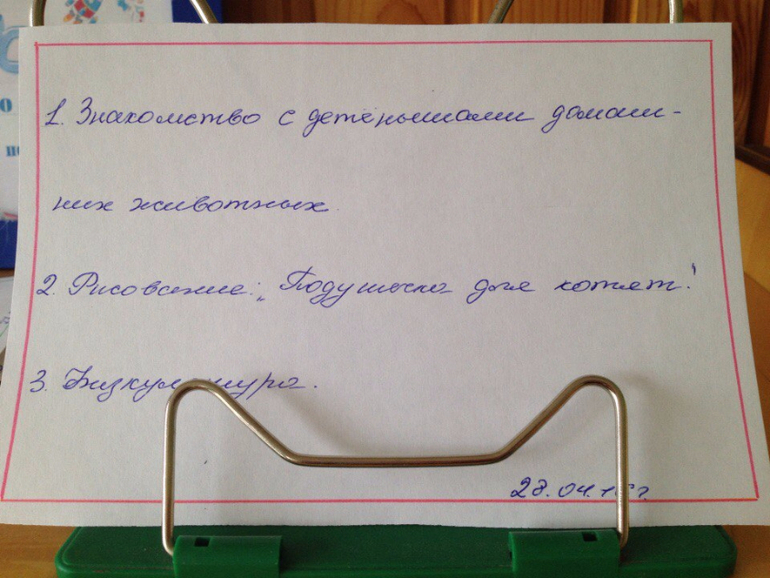 1. Знакомство с детёнышами домаш-
них животных.
2. Рисование: „Подушка для котят."
3. Физкультура.
28.04.15г.